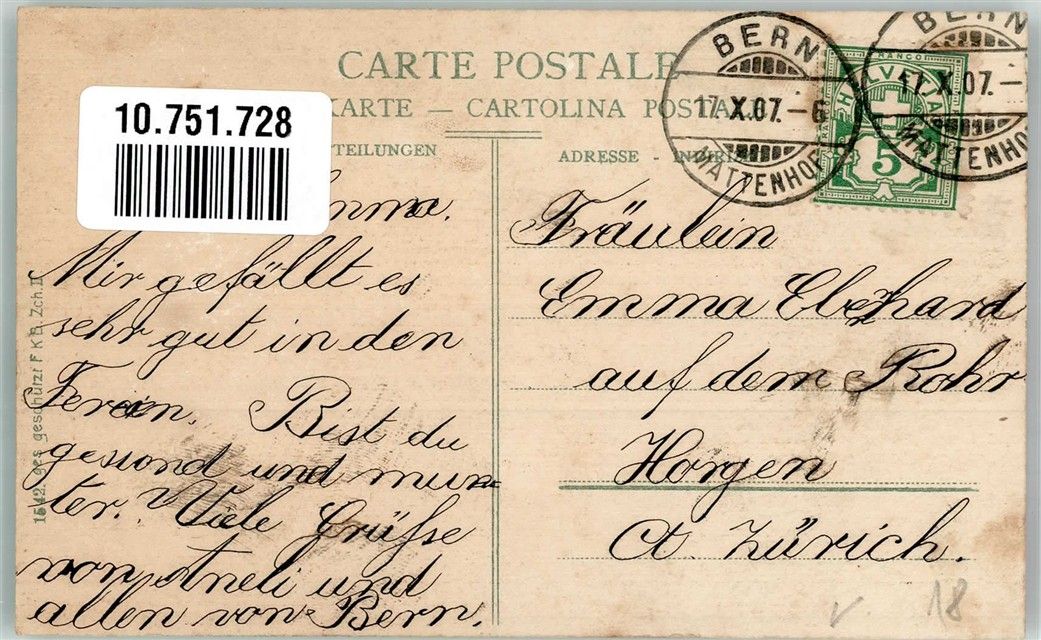 CARTE POSTALE
KARTE — CARTOLINA POSTALE
TEILUNGEN
ADRESSE - INDIRIZ
10.751.728
BERN
17.X.07.-6
MATTENHOF
BERN
17.X.07.-
MATTENHO
FRANCO
HELVETIA
5
mma.
Mir gefällt es
sehr gut in den
Ferien. Bist du
gesond und mun=
ter. Viele Grüsse
von Aneli und
allen von Bern.
Fräulein
Emma Eberhard
auf dem Rohr
Horgen
Ct. Zürich.
1542. Ges. geschützt F K B, Zch. II
18